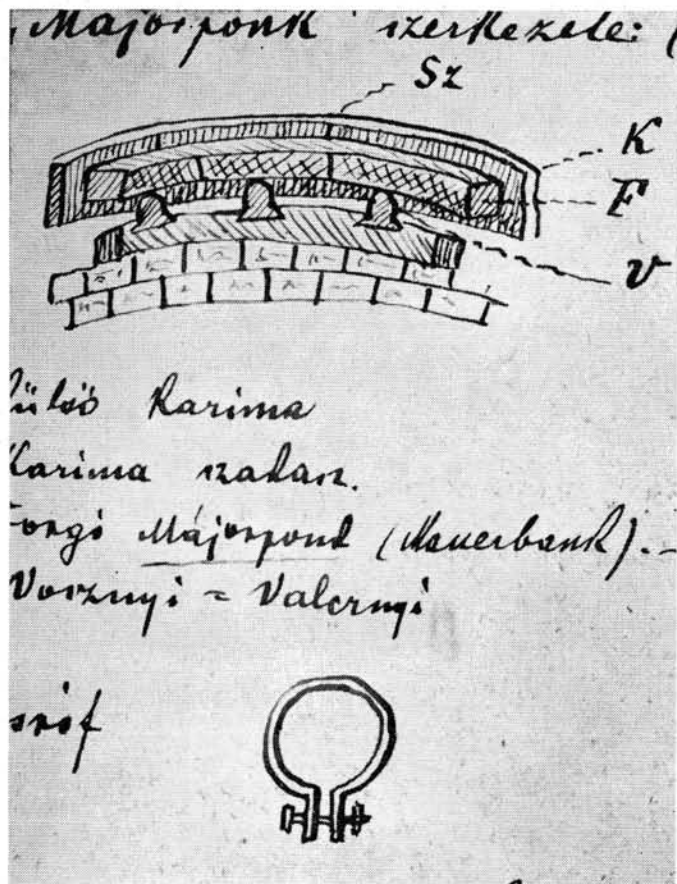 „Majorponk" szerkezete: (
Sz
K
F
V
ülső Karima
Karima szakasz.
Forgó Majorpond (Mauerbank). –
Vocznyi = Valcznyi
sróf